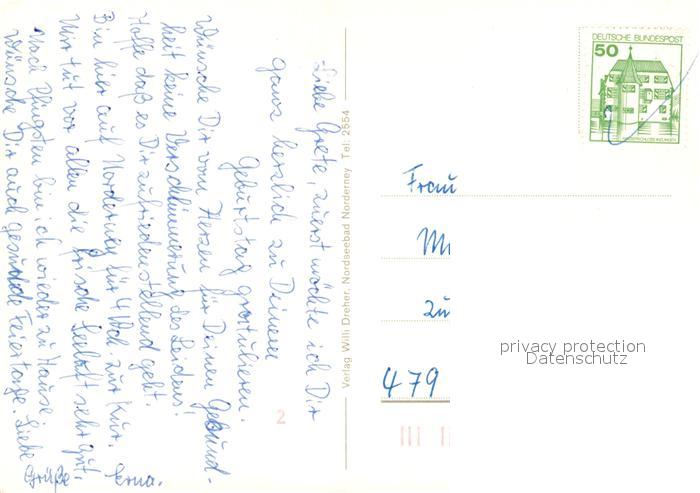 Liebe Grete, zuerst möchte ich Dir
ganz herzlich zu Deinem
Geburtstag gratulieren.
Wünsche Dir vom Herzen für Deinen Gesund-
heit keine Verschlimmerung des Leidens!
Hoffe daß es Dir zufriedenstellend geht.
Bin hier auf Norderney für 4 Woch. zur Kur.
Mir tut vor allen die frische Seeluft sehr gut.
Nach Pfingsten bin ich wieder zu Hause.
Wünsche Dir auch gesunde Feiertage. Liebe
Grüße Erna.
2
Verlag Willi Dreher, Nordseebad Norderney Tel: 2554
DEUTSCHE BUNDESPOST
50
Frau
zu
479
privacy protection
Datenschutz